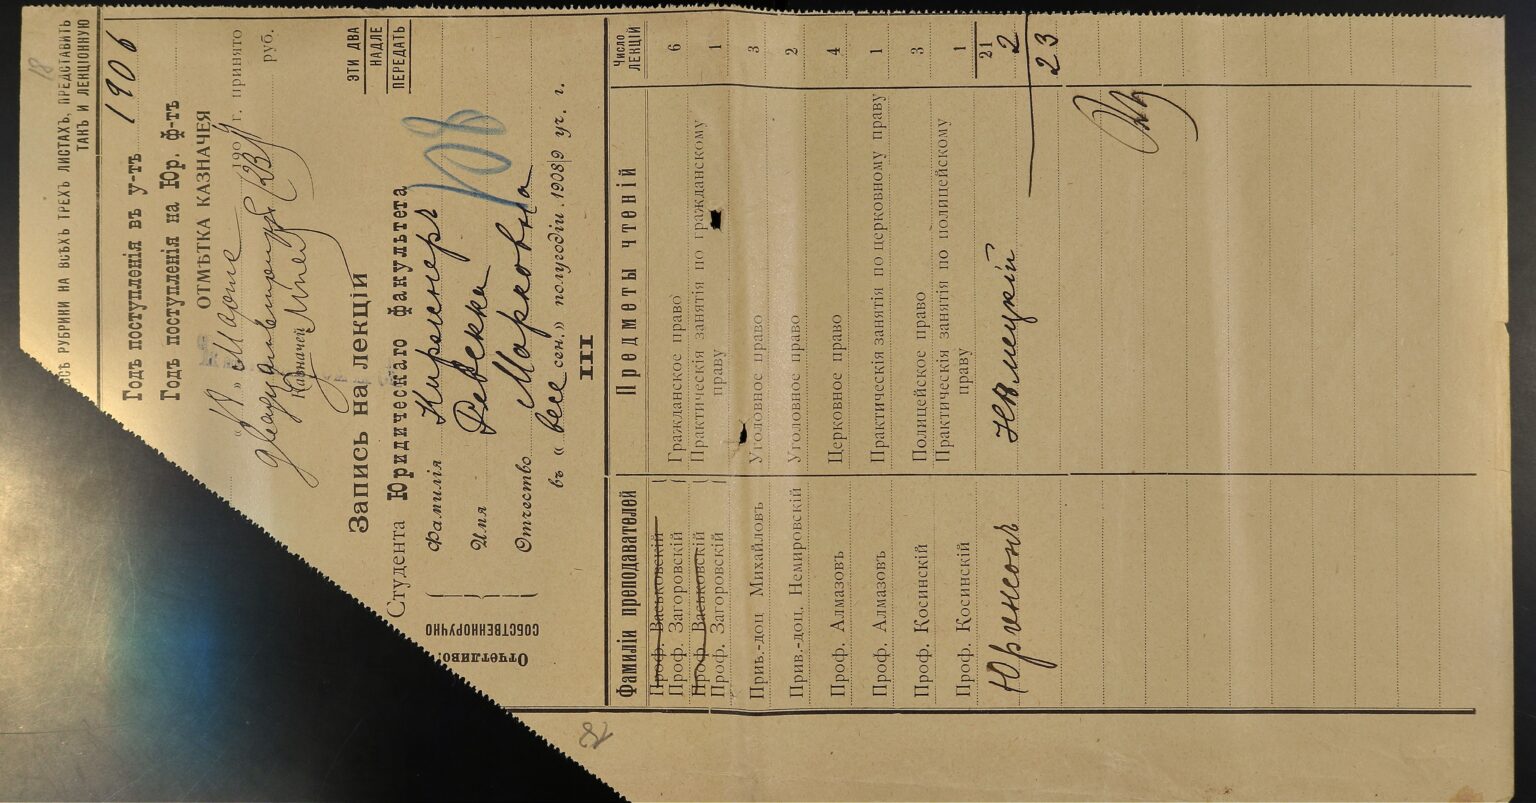 ВСѢ РУБРИКИ НА ВСѢХЪ ТРЕХЪ ЛИСТАХЪ, ПРЕДСТАВИТЬ
ТАКЪ И ЛЕКЦІОННУЮ
18
Годъ поступленія въ у-тъ 1906
Годъ поступленія на Юр. ф-тъ
ОТМѢТКА КАЗНАЧЕЯ
" " Марта 1909 г. принято
руб.
Казначей
ЭТИ ДВА
НАДЛЕ
ПЕРЕДАТЬ
Запись на лекціи
Студента Юридическаго факультета
Фамилія Киршнеръ
Имя Ревекка
Отчество Марковна
въ « весе сен.» полугодіи 1908|9 уч. г.
СОБСТВЕННОРУЧНО
Отчетливо!
III
Фамиліи преподавателей Предметы чтеній Число лекцій
Проф. Васьковскій
Проф. Загоровскій Гражданское право 6
Проф. Васьковскій Практическія занятія по гражданскому
Проф. Загоровскій праву 1
Прив.-доц Михайловъ Уголовное право 3
Прив.-доц. Немировскій Уголовное право 2
Проф. Алмазовъ Церковное право 4
Проф. Алмазовъ Практическія занятія по церковному праву 1
Проф. Косинскій Полицейское право 3
Проф. Косинскій Практическія занятія по полицейскому
праву 1
21
Юринсонъ Нѣмецкій 2
23